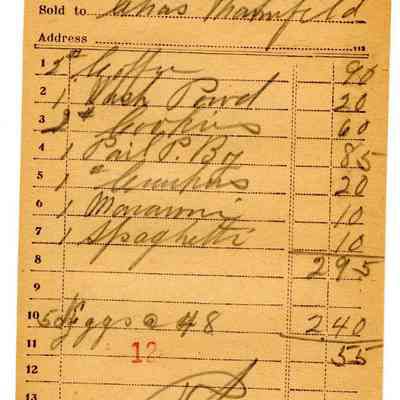 Sold to Chas Mannfeld
Address 113
1 2# Coffee 90
2 1 Wash Powd 20
3 2# Cookies 60
4 1 Pail P. B 85
5 1 " 20
6 1 Macaroni 10
7 1 Spaghetti 10
8 2 95
9
10 5 dz Eggs @ 48 2 40
11 55
12 12
13